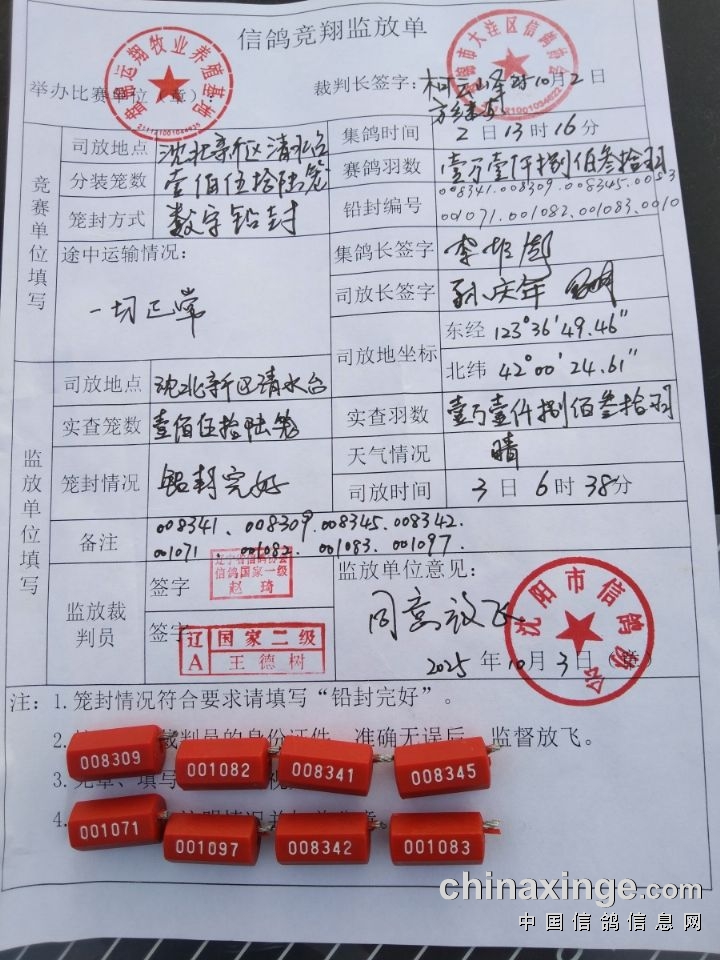 信鸽竞翔监放单
举办比赛单位（章）：
裁判长签字：
10月2日
竞赛单位填写
司放地点 沈北新区清水台
集鸽时间 2日13时16分
分装笼数 壹佰伍拾陆笼
赛鸽羽数 壹万壹仟捌佰叁拾羽
笼封方式 数字铅封
铅封编号 008341.008309.008345.0053
001071.001082.001083.0010
途中运输情况：
一切正常
集鸽长签字
司放长签字 孙庆年
司放地坐标
东经 123°36'49.46"
北纬 42°00'24.61"
监放单位填写
司放地点 沈北新区清水台
实查笼数 壹佰伍拾陆笼
实查羽数 壹万壹仟捌佰叁拾羽
天气情况 晴
笼封情况 铅封完好
司放时间 3日6时38分
备注 008341、008309.008345.008342.
001071、001082、001083.001097.
监放裁判员
签字
信鸽国家一级
赵琦
签字
辽A 国家二级
王德树
监放单位意见：
同意放飞
沈阳市信鸽协会
2025年10月3日（章）
注：1.笼封情况符合要求请填写“铅封完好”。
2.
裁判员的身份证件，准确无误后，监督放飞。
3.
4.
008309
001082
008341
008345
001071
001097
008342
001083
chinaxinge.com
中国信鸽信息网